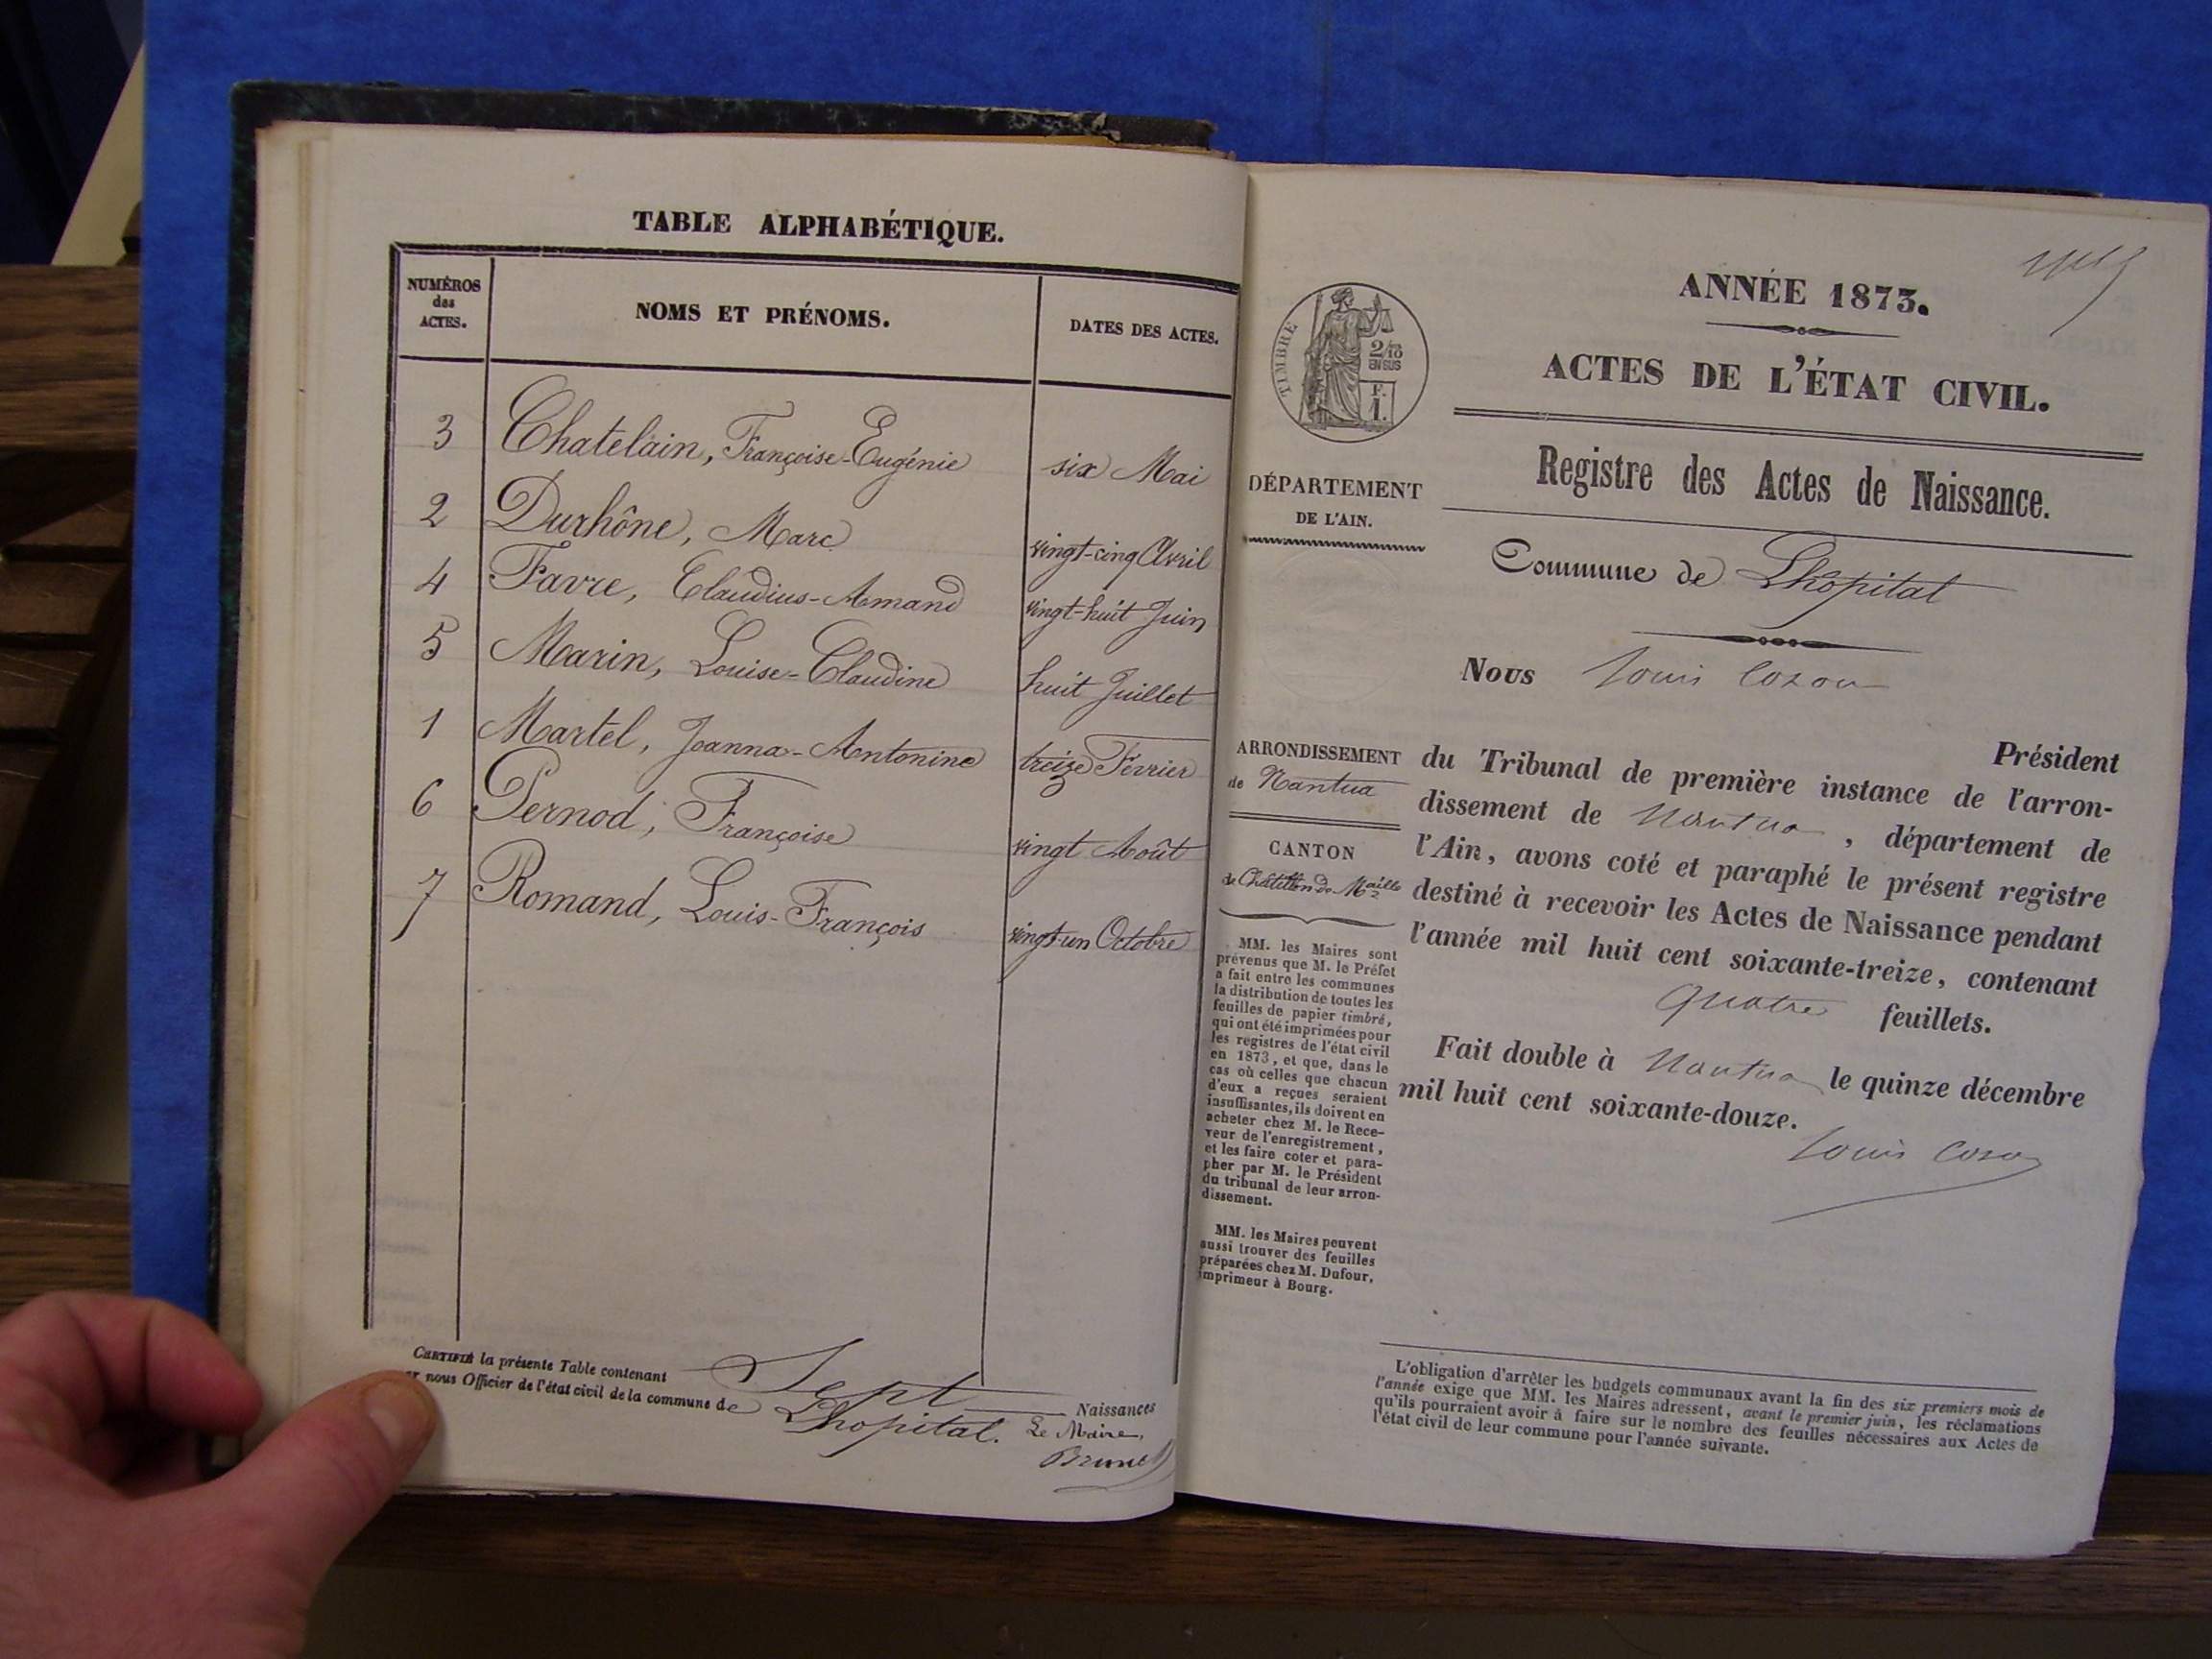 TABLE ALPHABÉTIQUE.
NUMÉROS
des
ACTES.
NOMS ET PRÉNOMS.
DATES DES ACTES.
3 Chatelain, Françoise-Eugénie six Mai
2 Durhône, Marc vingt-cinq Avril
4 Favre, Claudius-Armand vingt-huit Juin
5 Marin, Louise-Claudine huit Juillet
1 Martel, Joanna-Antonine treize Février
6 Pernod, Françoise vingt Août
7 Romand, Louis-François vingt-un Octobre
CERTIFIÉ la présente Table contenant Sept Naissances
nous Officier de l'état civil de la commune de Lhopital. Le Maire,
Brunet
ANNÉE 1873.
ACTES DE L'ÉTAT CIVIL.
TIMBRE
2/10
EN SUS
F.
1.
Registre des Actes de Naissance.
DÉPARTEMENT
DE L'AIN.
Commune de Lhôpital
Nous Louis Cozon
Président
ARRONDISSEMENT
de Nantua
CANTON
de Châtillon-de-Maille
du Tribunal de première instance de l'arron-
dissement de Nantua, département de
l'Ain, avons coté et paraphé le présent registre
destiné à recevoir les Actes de Naissance pendant
l'année mil huit cent soixante-treize, contenant
quatre feuillets.
Fait double à Nantua le quinze décembre
mil huit cent soixante-douze.
Louis Cozon
MM. les Maires sont
prévenus que M. le Préfet
a fait entre les communes
la distribution de toutes les
feuilles de papier timbré,
qui ont été imprimées pour
les registres de l'état civil
en 1873, et que, dans le
cas où celles que chacun
d'eux a reçues seraient
insuffisantes, ils doivent en
acheter chez M. le Rece-
veur de l'enregistrement,
et les faire coter et para-
pher par M. le Président
du tribunal de leur arron-
dissement.
MM. les Maires peuvent
aussi trouver des feuilles
préparées chez M. Dufour,
imprimeur à Bourg.
L'obligation d'arrêter les budgets communaux avant la fin des six premiers mois de
l'année exige que MM. les Maires adressent, avant le premier juin, les réclamations
qu'ils pourraient avoir à faire sur le nombre des feuilles nécessaires aux Actes de
l'état civil de leur commune pour l'année suivante.